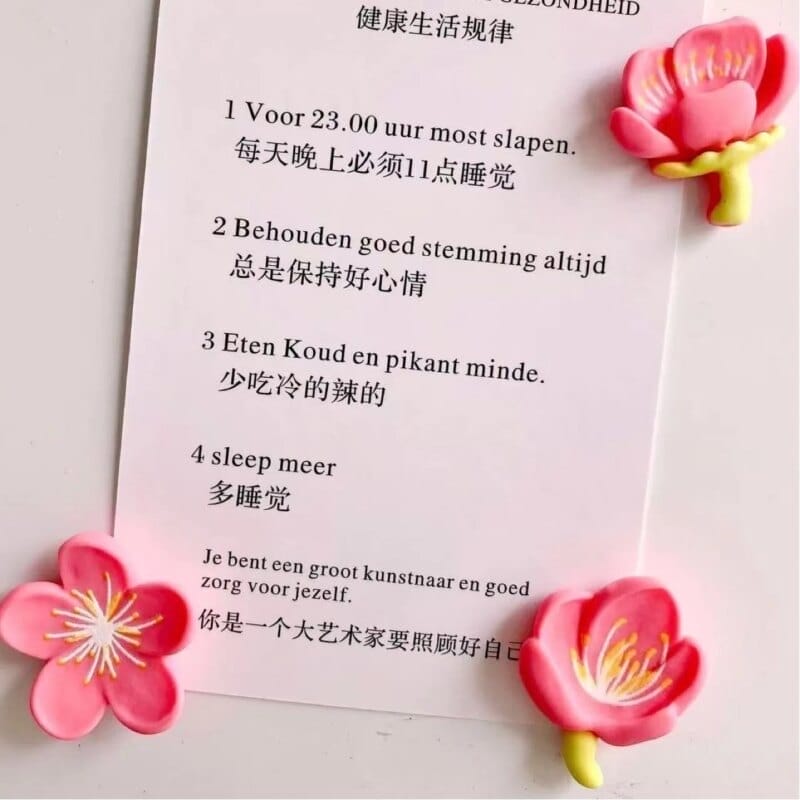 GEZONDHEID
健康生活规律
1 Voor 23.00 uur most slapen.
每天晚上必须11点睡觉
2 Behouden goed stemming altijd
总是保持好心情
3 Eten Koud en pikant minde.
少吃冷的辣的
4 sleep meer
多睡觉
Je bent een groot kunstnaar en goed
zorg voor jezelf.
你是一个大艺术家要照顾好自己